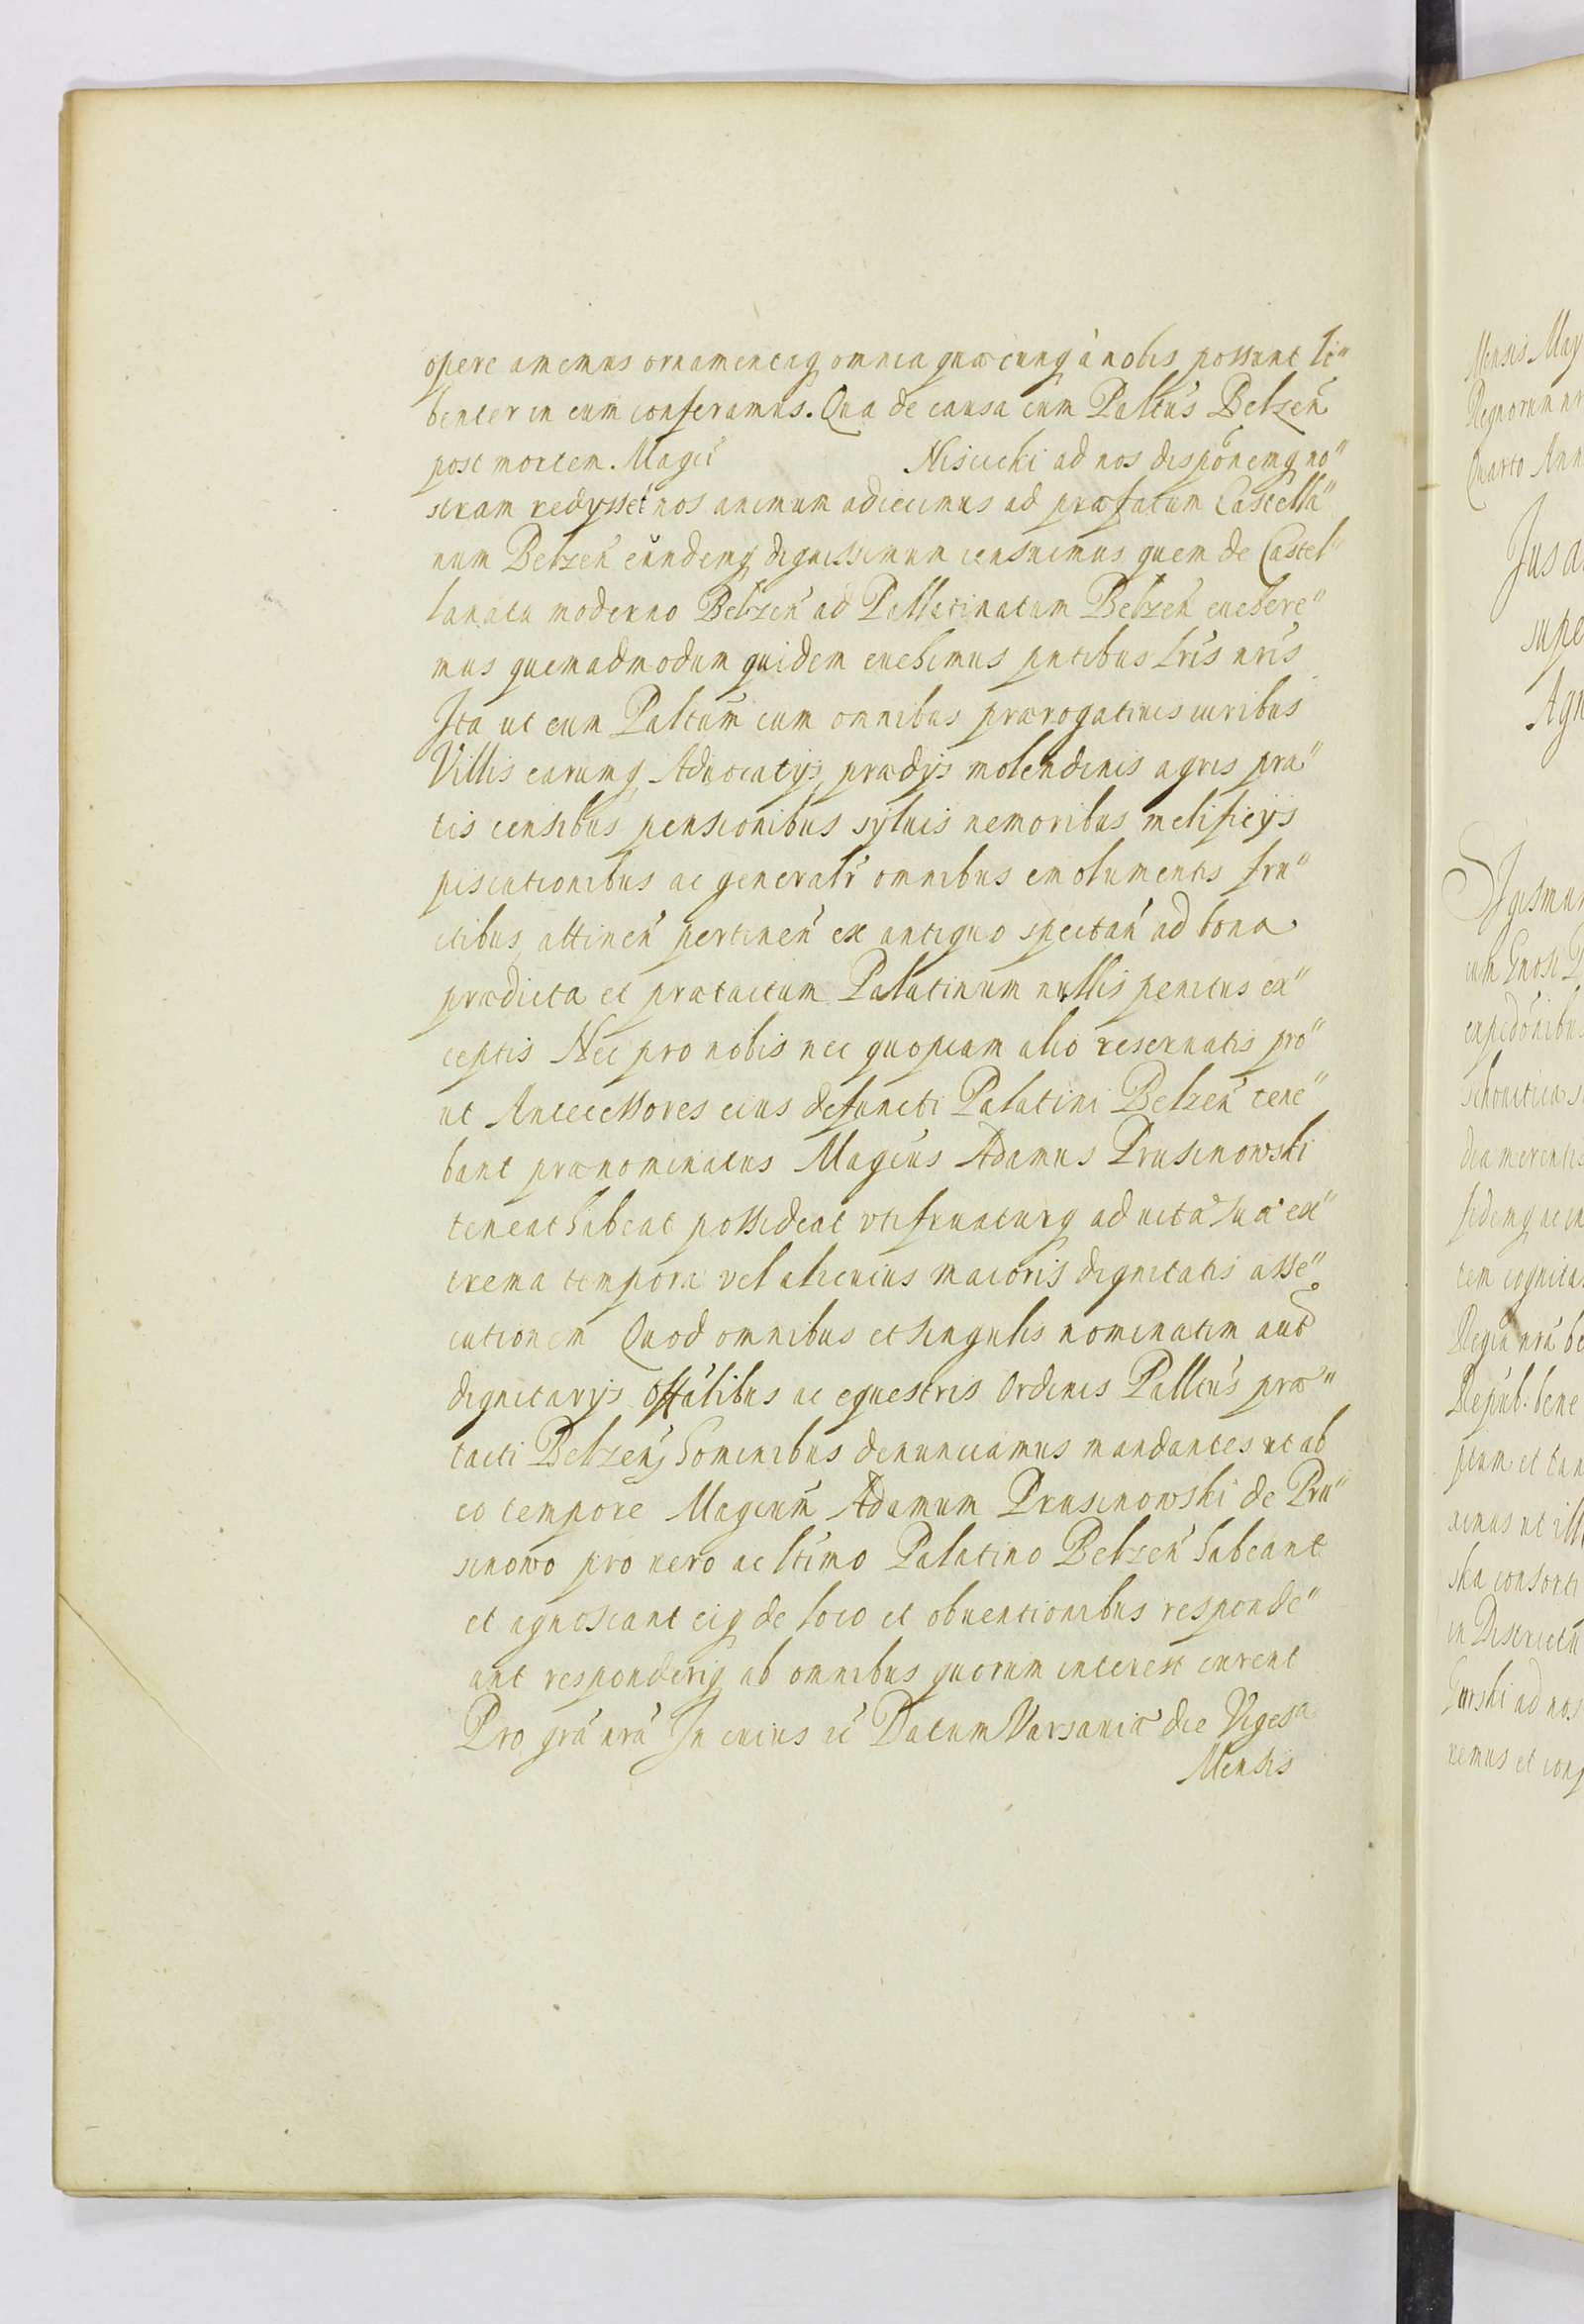 opere amemus ornamentaq omnia quæcunq à nobis possunt li"
benter in eum conferamus. Qua de causa cum Paltus Belzen
post mortem Magci Nisicchi ad nos disponemq no"
stram redysset nos animum adiecimus ad præfatum Castella"
num Belzen eundemq dignissimum censuimus quem de Castel"
lanatu moderno Belzen ad Pallatinatum Belzen euehere"
mus quemadmodum quidem euehimus pntibus Lris nris
Ita ut eum Paltum cum omnibus prærogatiuis iuribus
Villis earumq Aduocatys, prædys molendinis agris pra"
tis censibus pensionibus syluis nemoribus melificys
piscationibus ac generalr omnibus emolumentis fru"
ctibus, attinen pertinen ex antiquo spectan ad bona
prædicta et prætactum Palatinum nullis penitus ex"
ceptis Nec pro nobis nec quopiam alio reseruatis pro"
ut Antecessores eius defuncti Palatini Belzen tene"
bant prænominatus Magcus Adamus Prusinowski
teneat habeat possideat utifruaturq ad uitæ suæ ex"
trema tempora vel alicuius maioris dignitatis asse"
cutionem Quod omnibus et singulis nominatim aut
dignitarys offalibus ac equestris Ordinis Palltus præ"
tacti Belzen, hominibus denunciamus mandantes ut ab
eo tempore Magcum Adamum Prusinowski de Pru"
sinowo pro uero ac ltimo Palatino Belzen habeant
et agnoscant eiq de loco et obuentionibus responde"
ant responderiq ab omnibus quorum interest curent
Pro gra nra In cuius rei Datum Varsauiæ die Viges
Mensis
Mensis May
Regnorum nr
Quarto Ann
Jus a
supe
Agn
Sigismun
expedonibus
dia merentis
fidemq ac in
tem cognita
Regia nra be
Repub. bene
piam et tan
remus ut ill
ska consorti
in Districtu
Gurski ad nos
remus et conf